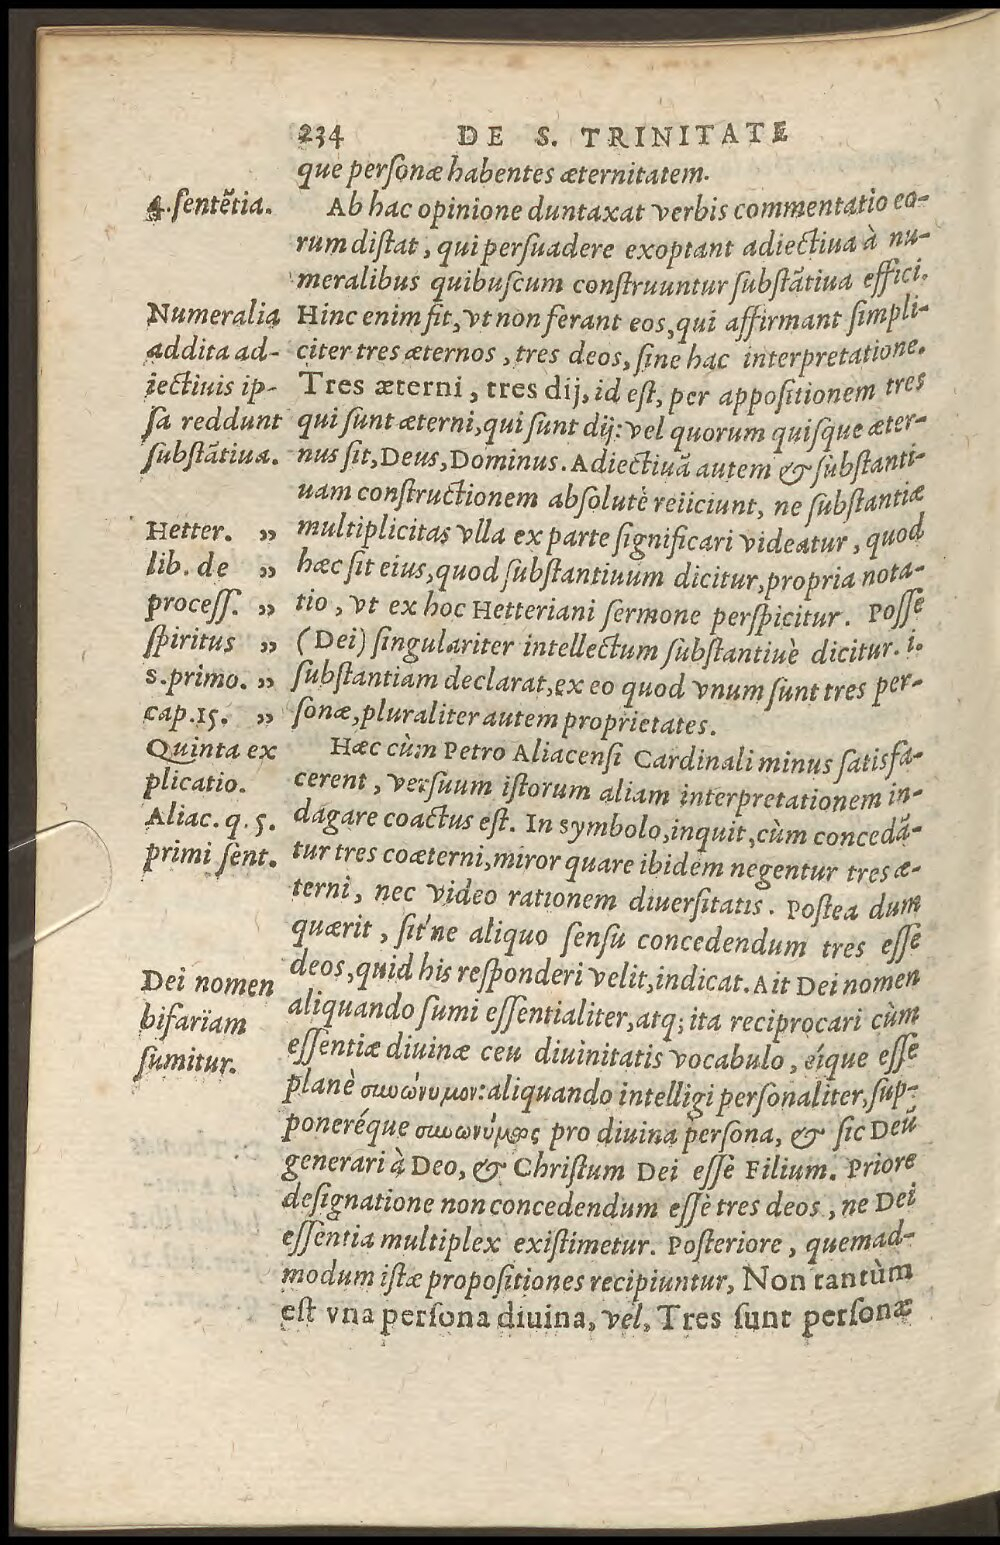 234 DE S. TRINITATE
que perſonæ habentes æternitatem.
4. ſentẽtia.
Ab hac opinione duntaxat verbis commentatio eo-
rum diſtat, qui perſuadere exoptant adiectiua à nu-
meralibus quibuſcum conſtruuntur ſubſtãtiua effici.
Numeralia
addita ad-
iectiuis ip-
ſa reddunt
ſubſtãtiua.
Hinc enim fit, vt non ferant eos, qui affirmant ſimpli-
citer tres æternos, tres deos, ſine hac interpretatione.
Tres æterni, tres dij, id eſt, per appoſitionem tres
qui ſunt æterni, qui ſunt dij: vel quorum quiſque æter-
nus ſit, Deus, Dominus. Adiectiuã autem & ſubſtanti-
uam conſtructionem abſolutè reiiciunt, ne ſubſtantiæ
multiplicitas vlla ex parte ſignificari videatur, quod
hæc ſit eius, quod ſubſtantiuum dicitur, propria nota-
tio, vt ex hoc Hetteriani ſermone perſpicitur. Poſſe
Hetter. „
lib. de „
proceſſ. „
ſpiritus „
s. primo. „
cap. 15. „
(Dei) ſingulariter intellectum ſubſtantiuè dicitur. i.
ſubſtantiam declarat, ex eo quod vnum ſunt tres per-
ſonæ, pluraliter autem proprietates.
Quinta ex
plicatio.
Aliac. q. 5.
primi ſent.
Hæc cùm Petro Aliacenſi Cardinali minus ſatisfa-
cerent, verſuum iſtorum aliam interpretationem in-
dagare coactus eſt. In symbolo, inquit, cùm concedã-
tur tres coæterni, miror quare ibidem negentur tres æ-
terni, nec video rationem diuerſitatis. Poſtea dum
quærit, ſit'ne aliquo ſenſu concedendum tres eſſe
deos, quid his reſponderi velit, indicat. Ait Dei nomen
Dei nomen
bifariam
ſumitur.
aliquando ſumi eſſentialiter, atq; ita reciprocari cùm
eſſentiæ diuinæ ceu diuinitatis vocabulo, eíque eſſe
planè συνώνυμον: aliquando intelligi perſonaliter, ſup-
poneréque συνωνύμως pro diuina perſona, & ſic Deũ
generari à Deo, & Chriſtum Dei eſſe Filium. Priore
deſignatione non concedendum eſſè tres deos, ne Dei
eſſentia multiplex exiſtimetur. Poſteriore, quemad-
modum iſtæ propoſitiones recipiuntur, Non tantùm
eſt vna perſona diuina, vel, Tres ſunt perſonæ